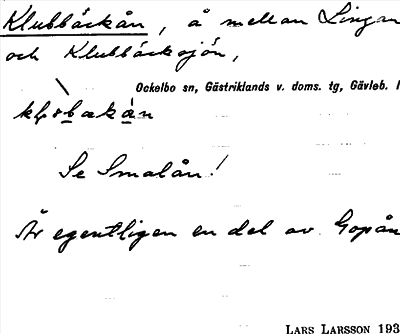 Klubbäckån, å mellan Lingan
och Klubbäcksjön,
Ockelbo sn, Gästriklands v. doms. tg, Gävleb. l
Se Smalån!
Är egentligen en del av Gopån
LARS LARSSON 193